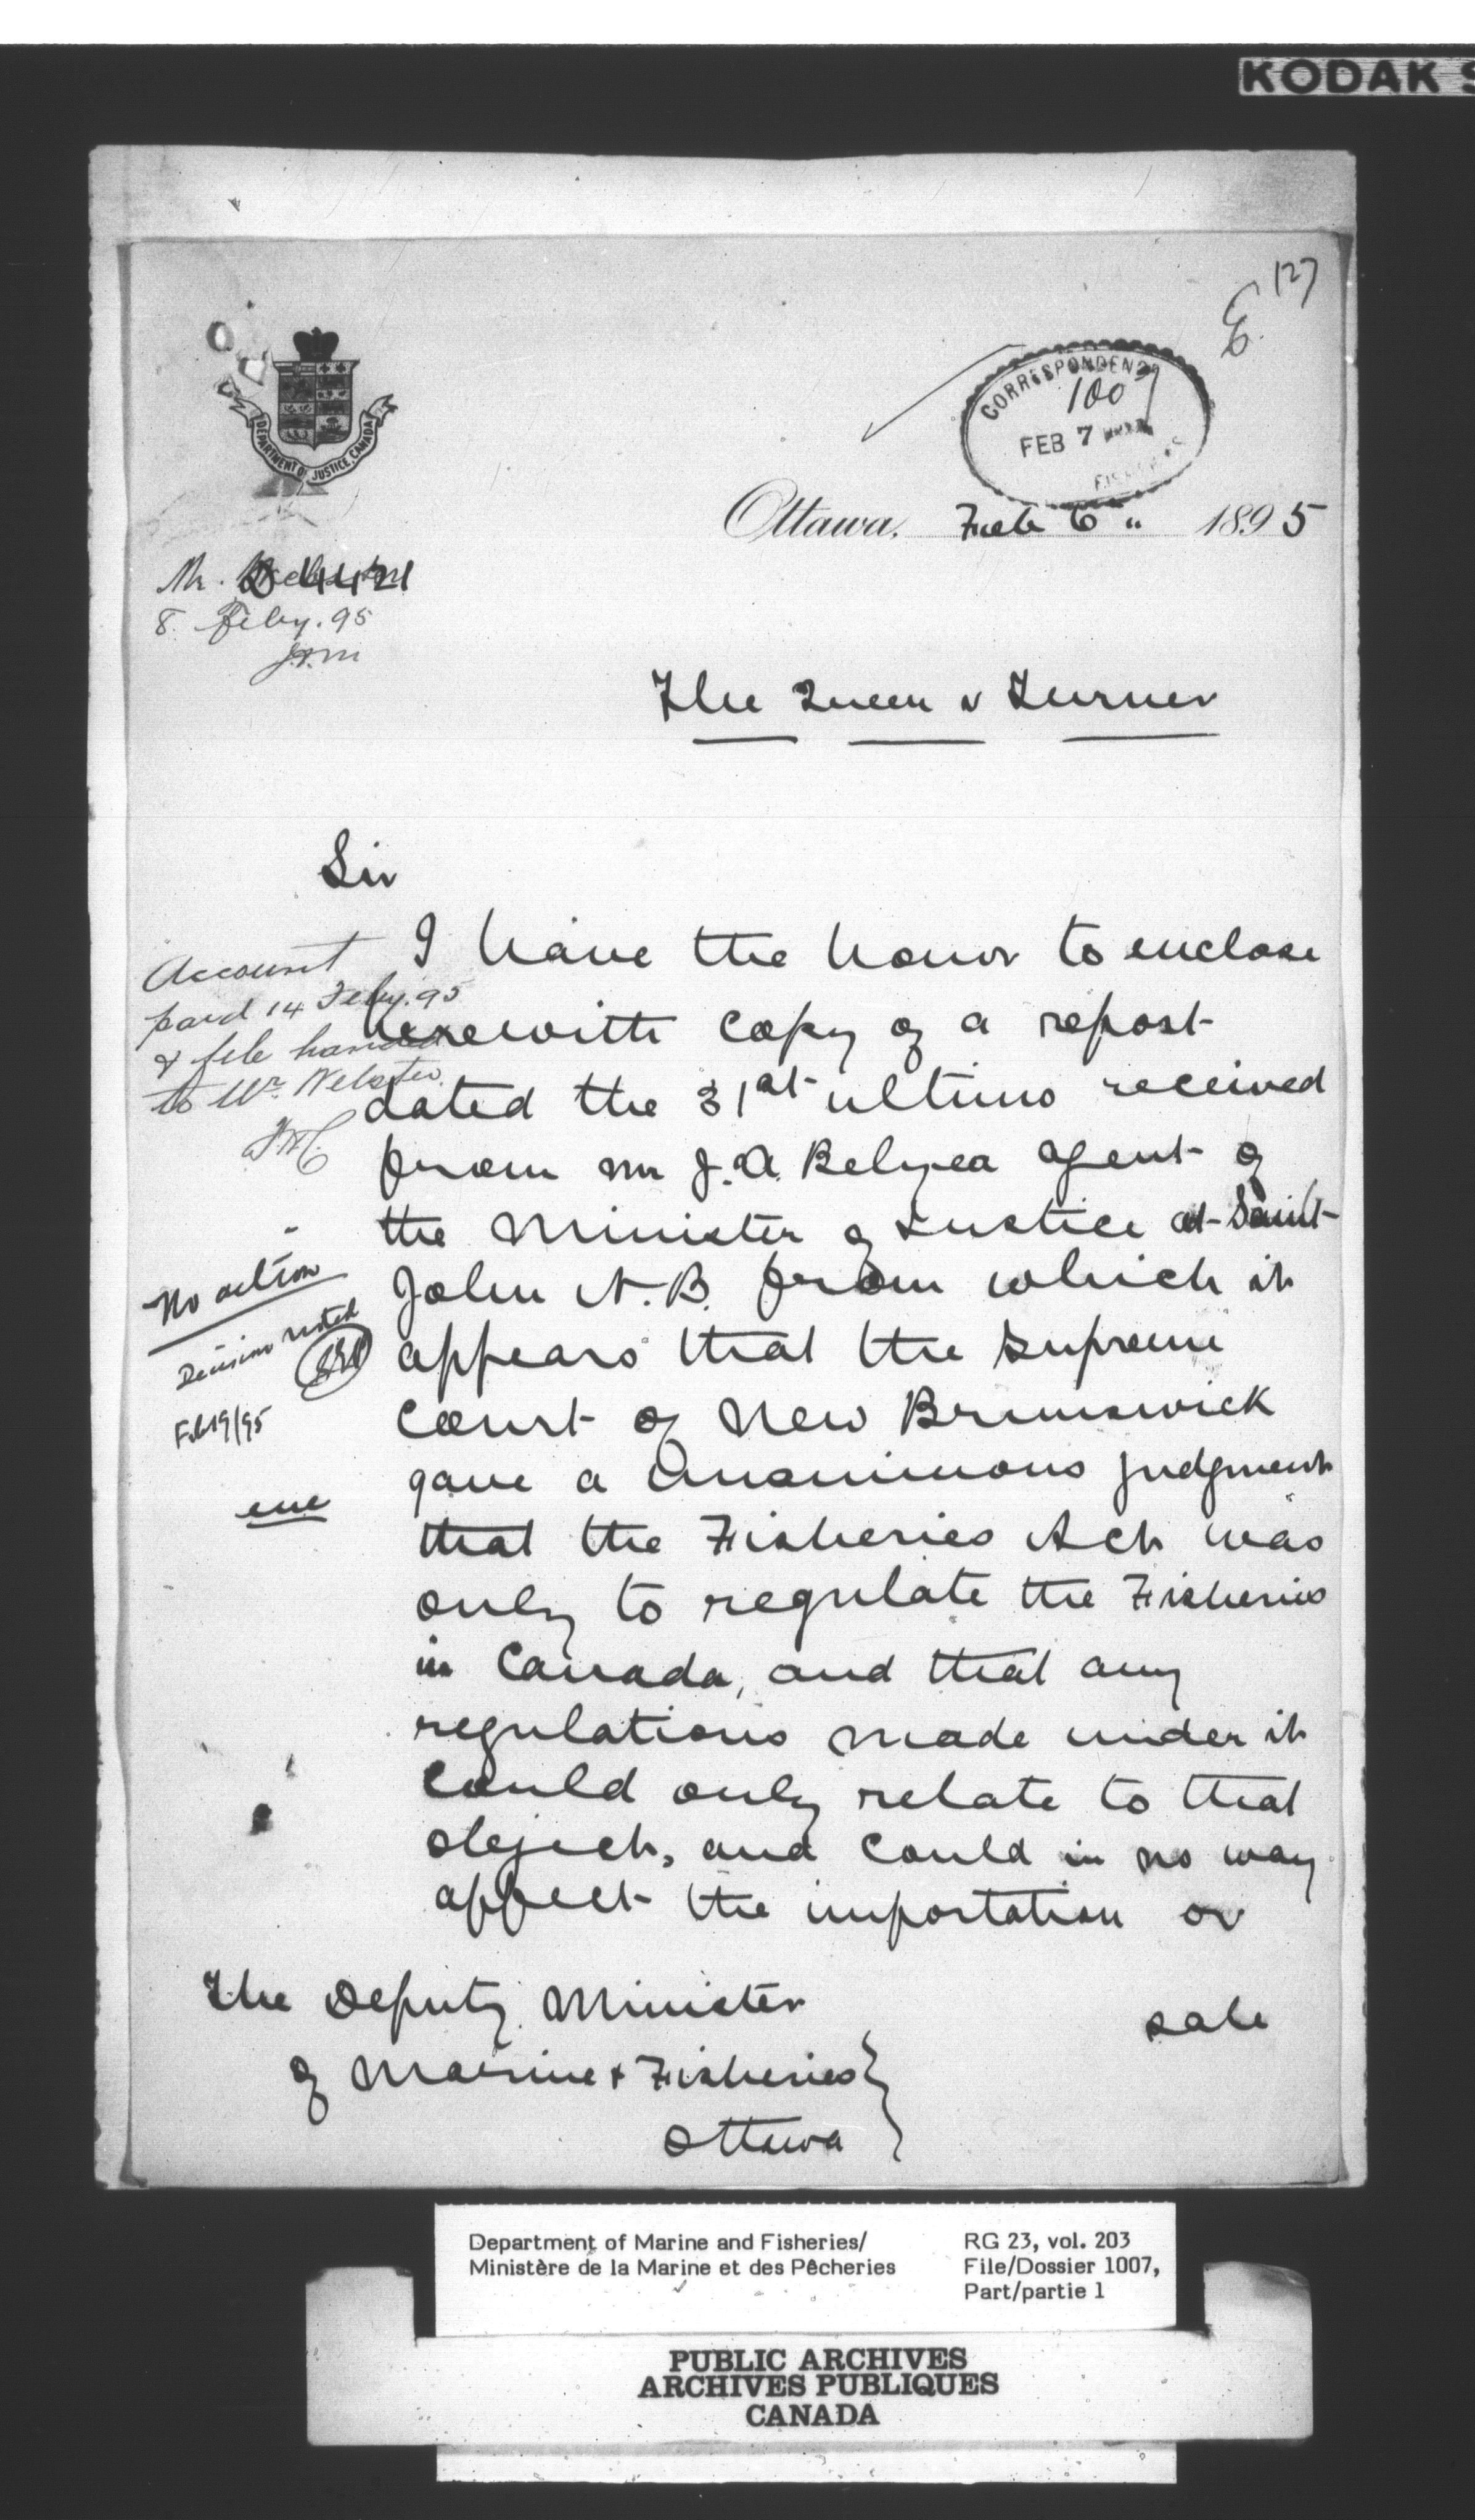 KODAK S
127
E.
CORRESPONDENCE
1007
FEB 7
FISHERIES
DEPARTMENT OF JUSTICE, CANADA
Ottawa, Feb 6 " 1895
Mr.
D 4421
8. Feby. 95
The Queen v Turner
Sir
I have the honor to enclose
herewith copy of a report
dated the 31st ultimo received
from Mr J. A. Belyea agent of
the Minister of Justice at Saint
John N.B. from which it
appears that the Supreme
Court of New Brunswick
gave a unanimous judgment
that the Fisheries Act was
only to regulate the Fisheries
in Canada, and that any
regulations made under it
could only relate to that
object, and could in no way
affect the importation or
sale
The Deputy Minister
of Marine & Fisheries
Ottawa
Account
paid 14 Feby. 95
& file handed
to Mr. Webster.
No action
Decision noted
Feb 19/95
enc
Department of Marine and Fisheries/
Ministère de la Marine et des Pêcheries
RG 23, vol. 203
File/Dossier 1007,
Part/partie 1
PUBLIC ARCHIVES
ARCHIVES PUBLIQUES
CANADA